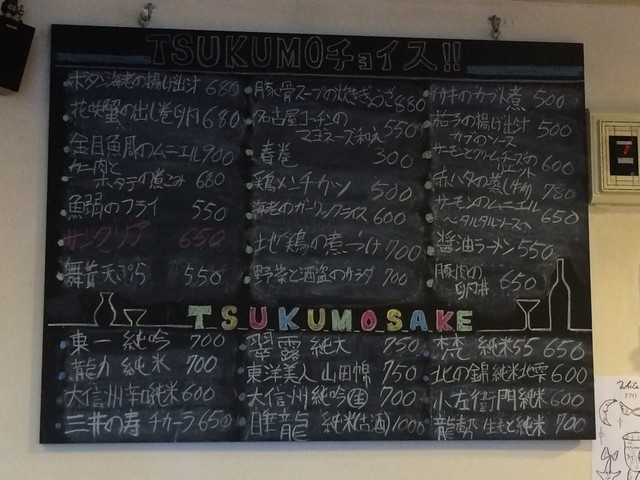 TSUKUMOチョイス!!
ボタン海老の揚げ出汁 680
花咲蟹の出し巻き卵 680
金目魚豚のムニエル 900
カニ肉と
ホタテの煮こみ 680
魚弱のフライ 550
サングリア 650
舞茸天ぷら 550
豚骨スープの炊きぎょうざ 880
名古屋コーチンの
マヨネーズ和え 550
春巻 300
鶏メンチカツ 500
海老のガーリックライス 600
地鶏の煮つけ 700
野菜と酒盗のサラダ 700
イサキのカブト煮 500
茄子の揚げ出汁 500
カブのソース
サーモンとクリームチーズの 600
赤ハタの蒸し物 780
サーモンのムニエル
〜タルタルソース〜 650
醤油ラーメン 550
豚肉の
卵丼 650
TSUKUMOSAKE
東一 純吟 700
龍力 純米 700
大信州 辛口純米 600
三井の寿 チカーラ 650
翠露 純大 750
東洋美人 山田錦 750
大信州 純吟 生 700
睡龍 純米(古酒) 1000
梵 純米55 650
北の錦 純米北雫 600
小左衛門 純米 600
龍勢 生もと純米 700